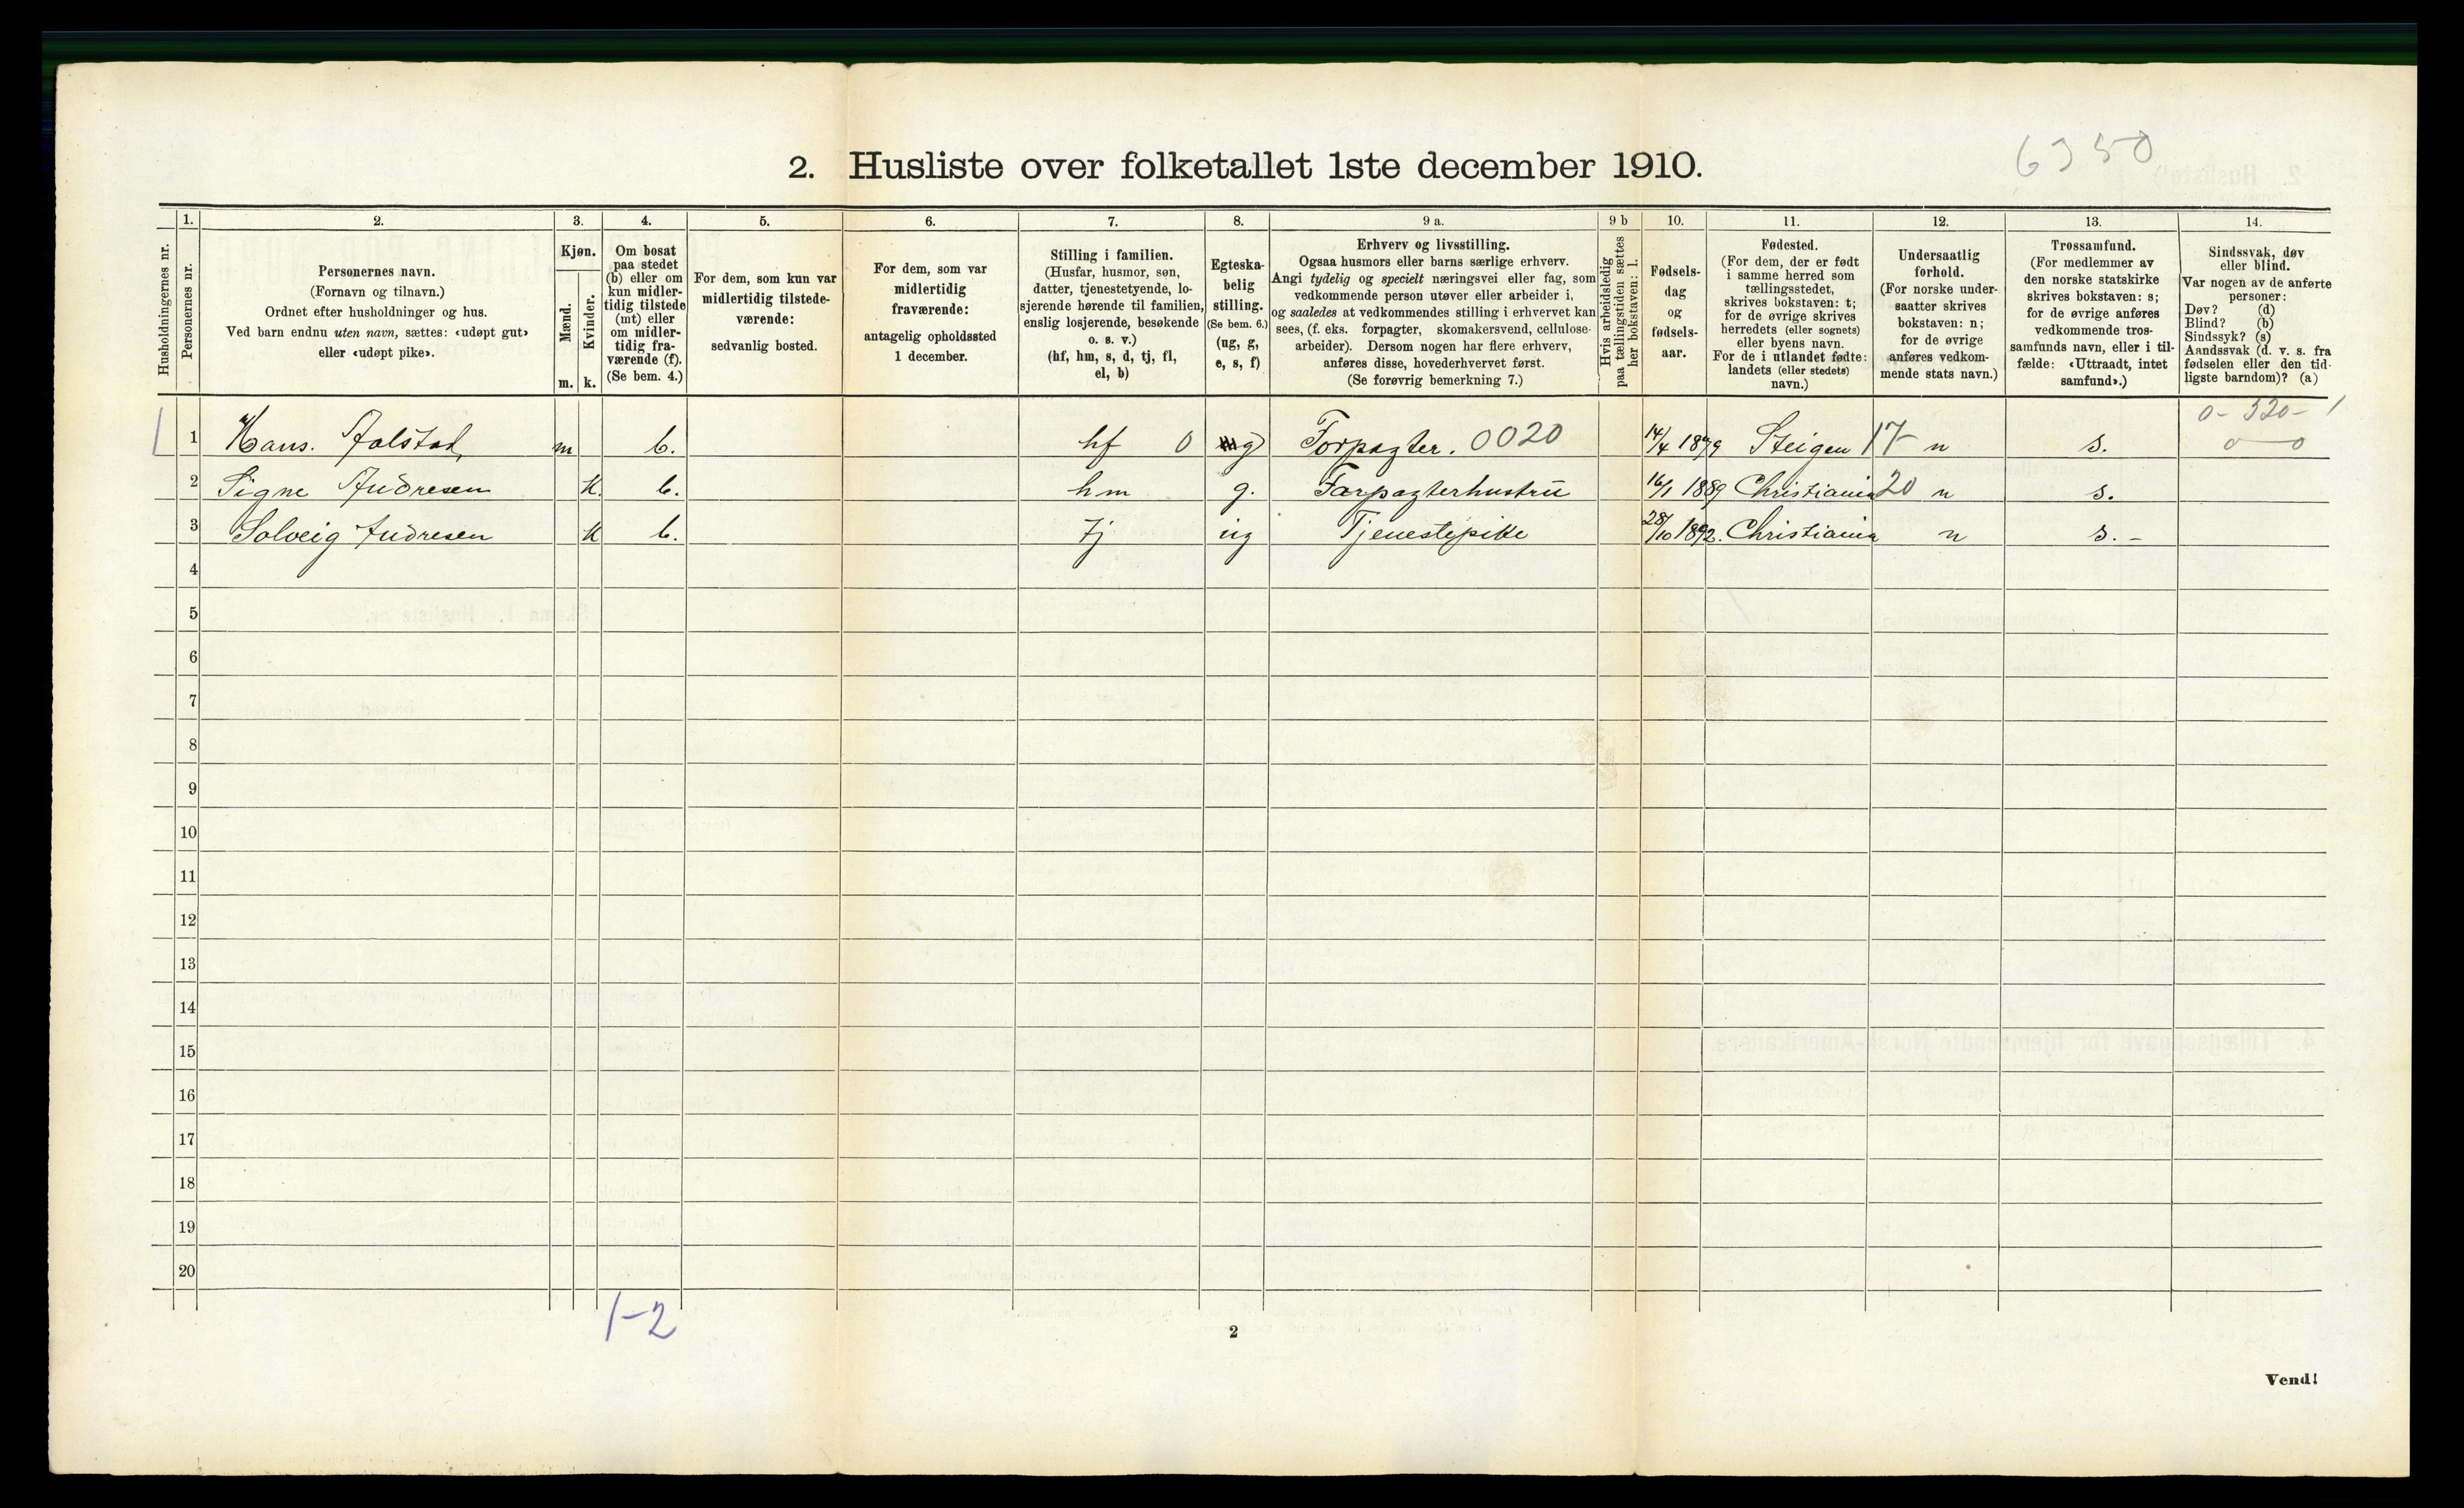 6350
2. Husliste over folketallet 1ste december 1910.
Husholdningernes nr.
1.
Personernes nr.
2.
Personernes navn.
(Fornavn og tilnavn.)
Ordnet efter husholdninger og hus.
Ved barn endnu uten navn, sættes: «udøpt gut»
eller «udøpt pike».
3.
Kjøn.
Mænd.
m.
Kvinder.
k.
4.
Om bosat
paa stedet
(b) eller om
kun midler-
tidig tilstede
(mt) eller
om midler-
tidig fra-
værende (f).
(Se bem. 4.)
5.
For dem, som kun var
midlertidig tilstede-
værende:
sedvanlig bosted.
6.
For dem, som var
midlertidig
fraværende:
antagelig opholdssted
1 december.
7.
Stilling i familien.
(Husfar, husmor, søn,
datter, tjenestetyende, lo-
sjerende hørende til familien,
enslig losjerende, besøkende
o. s. v.)
(hf, hm, s, d, tj, fl,
el, b)
8.
Egteska-
belig
stilling.
(Se bem. 6.)
(ug, g,
e, s, f)
9 a.
Erhverv og livsstilling.
Ogsaa husmors eller barns særlige erhverv.
Angi tydelig og specielt næringsvei eller fag, som
vedkommende person utøver eller arbeider i,
og saaledes at vedkommendes stilling i erhvervet kan
sees, (f. eks. forpagter, skomakersvend, cellulose-
arbeider). Dersom nogen har flere erhverv,
anføres disse, hovederhvervet først.
(Se forøvrig bemerkning 7.)
9 b
Hvis arbeidsledig
paa tællingstiden sættes
her bokstaven: l.
10.
Fødsels-
dag
og
fødsels-
aar.
11.
Fødested.
(For dem, der er født
i samme herred som
tællingsstedet,
skrives bokstaven: t;
for de øvrige skrives
herredets (eller sognets)
eller byens navn.
For de i utlandet fødte:
landets (eller stedets)
navn.)
12.
Undersaatlig
forhold.
(For norske under-
saatter skrives
bokstaven: n;
for de øvrige
anføres vedkom-
mende stats navn.)
13.
Trossamfund.
(For medlemmer av
den norske statskirke
skrives bokstaven: s;
for de øvrige anføres
vedkommende tros-
samfunds navn, eller i til-
fælde: «Uttraadt, intet
samfund».)
14.
Sindssvak, døv
eller blind.
Var nogen av de anførte
personer:
Døv? (d)
Blind? (b)
Sindssyk? (s)
Aandssvak (d. v. s. fra
fødselen eller den tid-
ligste barndom)? (a)
0-320-1
1 1 Hans. Aalstad, m b. hf 0 g Forpagter. 0020 14/4 1879 Steigen 17 n s. 0-0
2 Signe Andresen K. b. hm g. Forpagterhustru 16/1 1889 Christiania 20 n s.
3 Solveig Andresen K b. tj ug Tjenestepike 28/10 1892. Christiania n s. -
4
5
6
7
8
9
10
11
12
13
14
15
16
17
18
19
20
1-2
2
Vend!